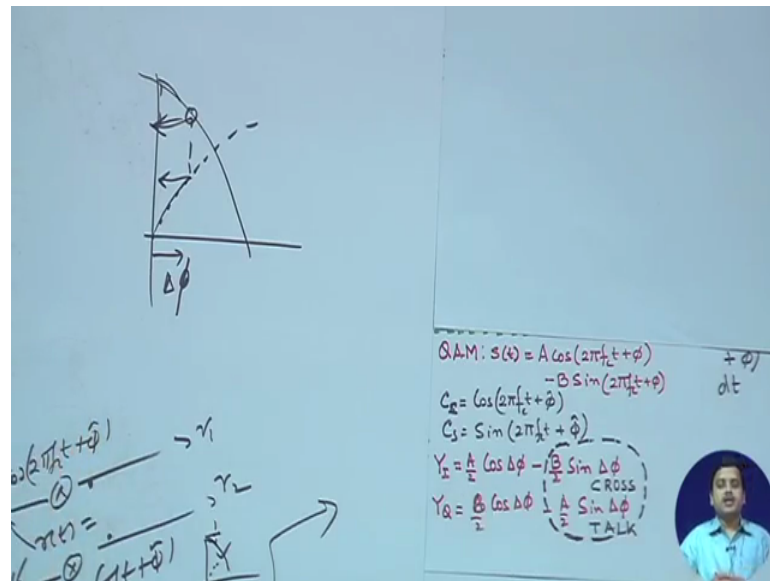 Δφ
QAM: S(t) = A cos(2πf_c t + φ)
- B sin(2πf_c t + φ)
+ φ)
dt
C_c = cos(2πf_c t + φ̂)
C_s = Sin(2πf_c t + φ̂)
Y_I = A/2 cos Δφ - B/2 Sin Δφ
CROSS
Y_Q = B/2 cos Δφ + A/2 Sin Δφ
TALK
cos(2πf_c t + φ̂)
→ r₁
→ r₂
r(t) =
t + φ̂)